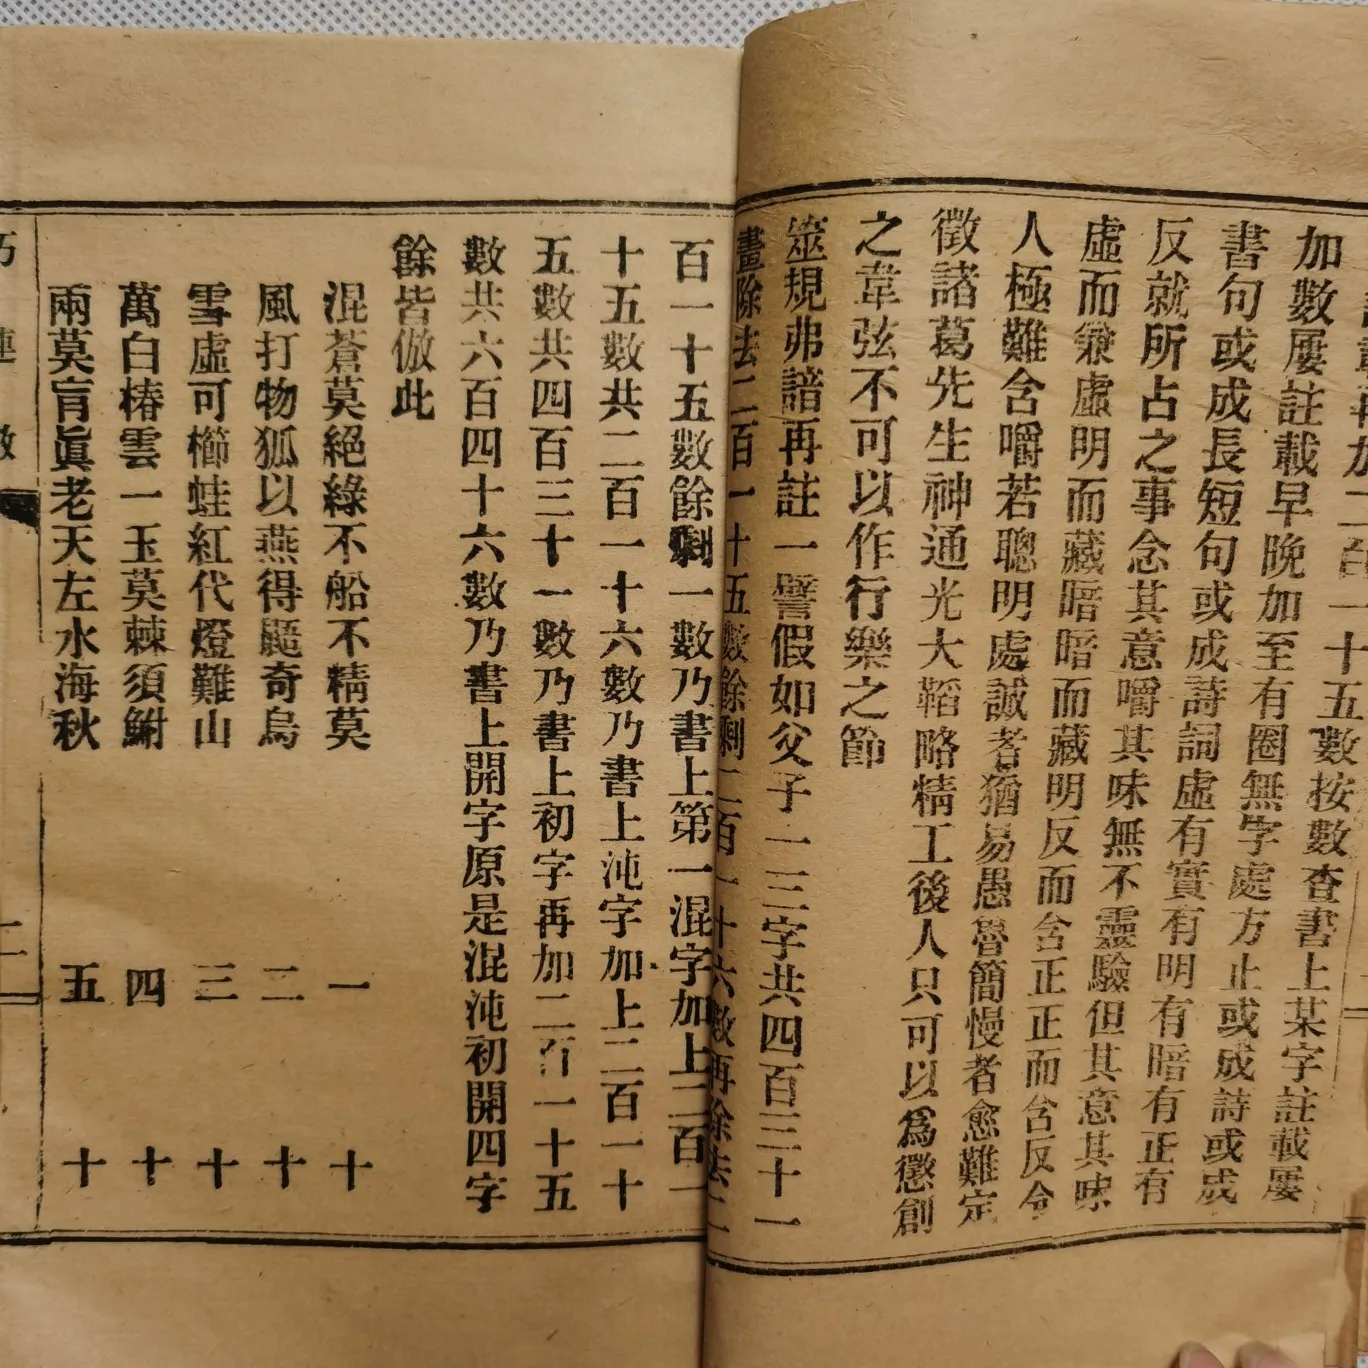 加二百一十五數按數查書上某字註載屢
加數屢註載早晚加至有圈無字處方止或成詩或成
書句或成長短句或成詩詞虛有實有明有暗有正有
反就所占之事念其意嚼其味無不靈驗但其意其味
虛而兼虛明而藏暗暗而藏明反而含正正而含反令
人極難含嚼若聰明處誠者猶易愚魯簡慢者愈難定
徵諸葛先生神通光大韜略精工後人只可以爲懲創
之韋弦不可以作行樂之節
筮規弗諳再註一譬假如父子一三字共四百三十一
畫除去二百一十五數餘剩二百一十六數再除去二
百一十五數餘剩一數乃書上第一混字加上二百一
十五數共二百一十六數乃書上沌字加上二百一十
五數共四百三十一數乃書上初字再加二百一十五
數共六百四十六數乃書上開字原是混沌初開四字
餘皆倣此
混蒼莫絕綠不船不精莫 一 十
風打物狐以燕得颺奇烏 二 十
雪虛可櫛蛙紅代燈難山 三 十
萬白椿雲一玉莫棘須鮒 四 十
兩莫肓眞老天左水海秋 五 十